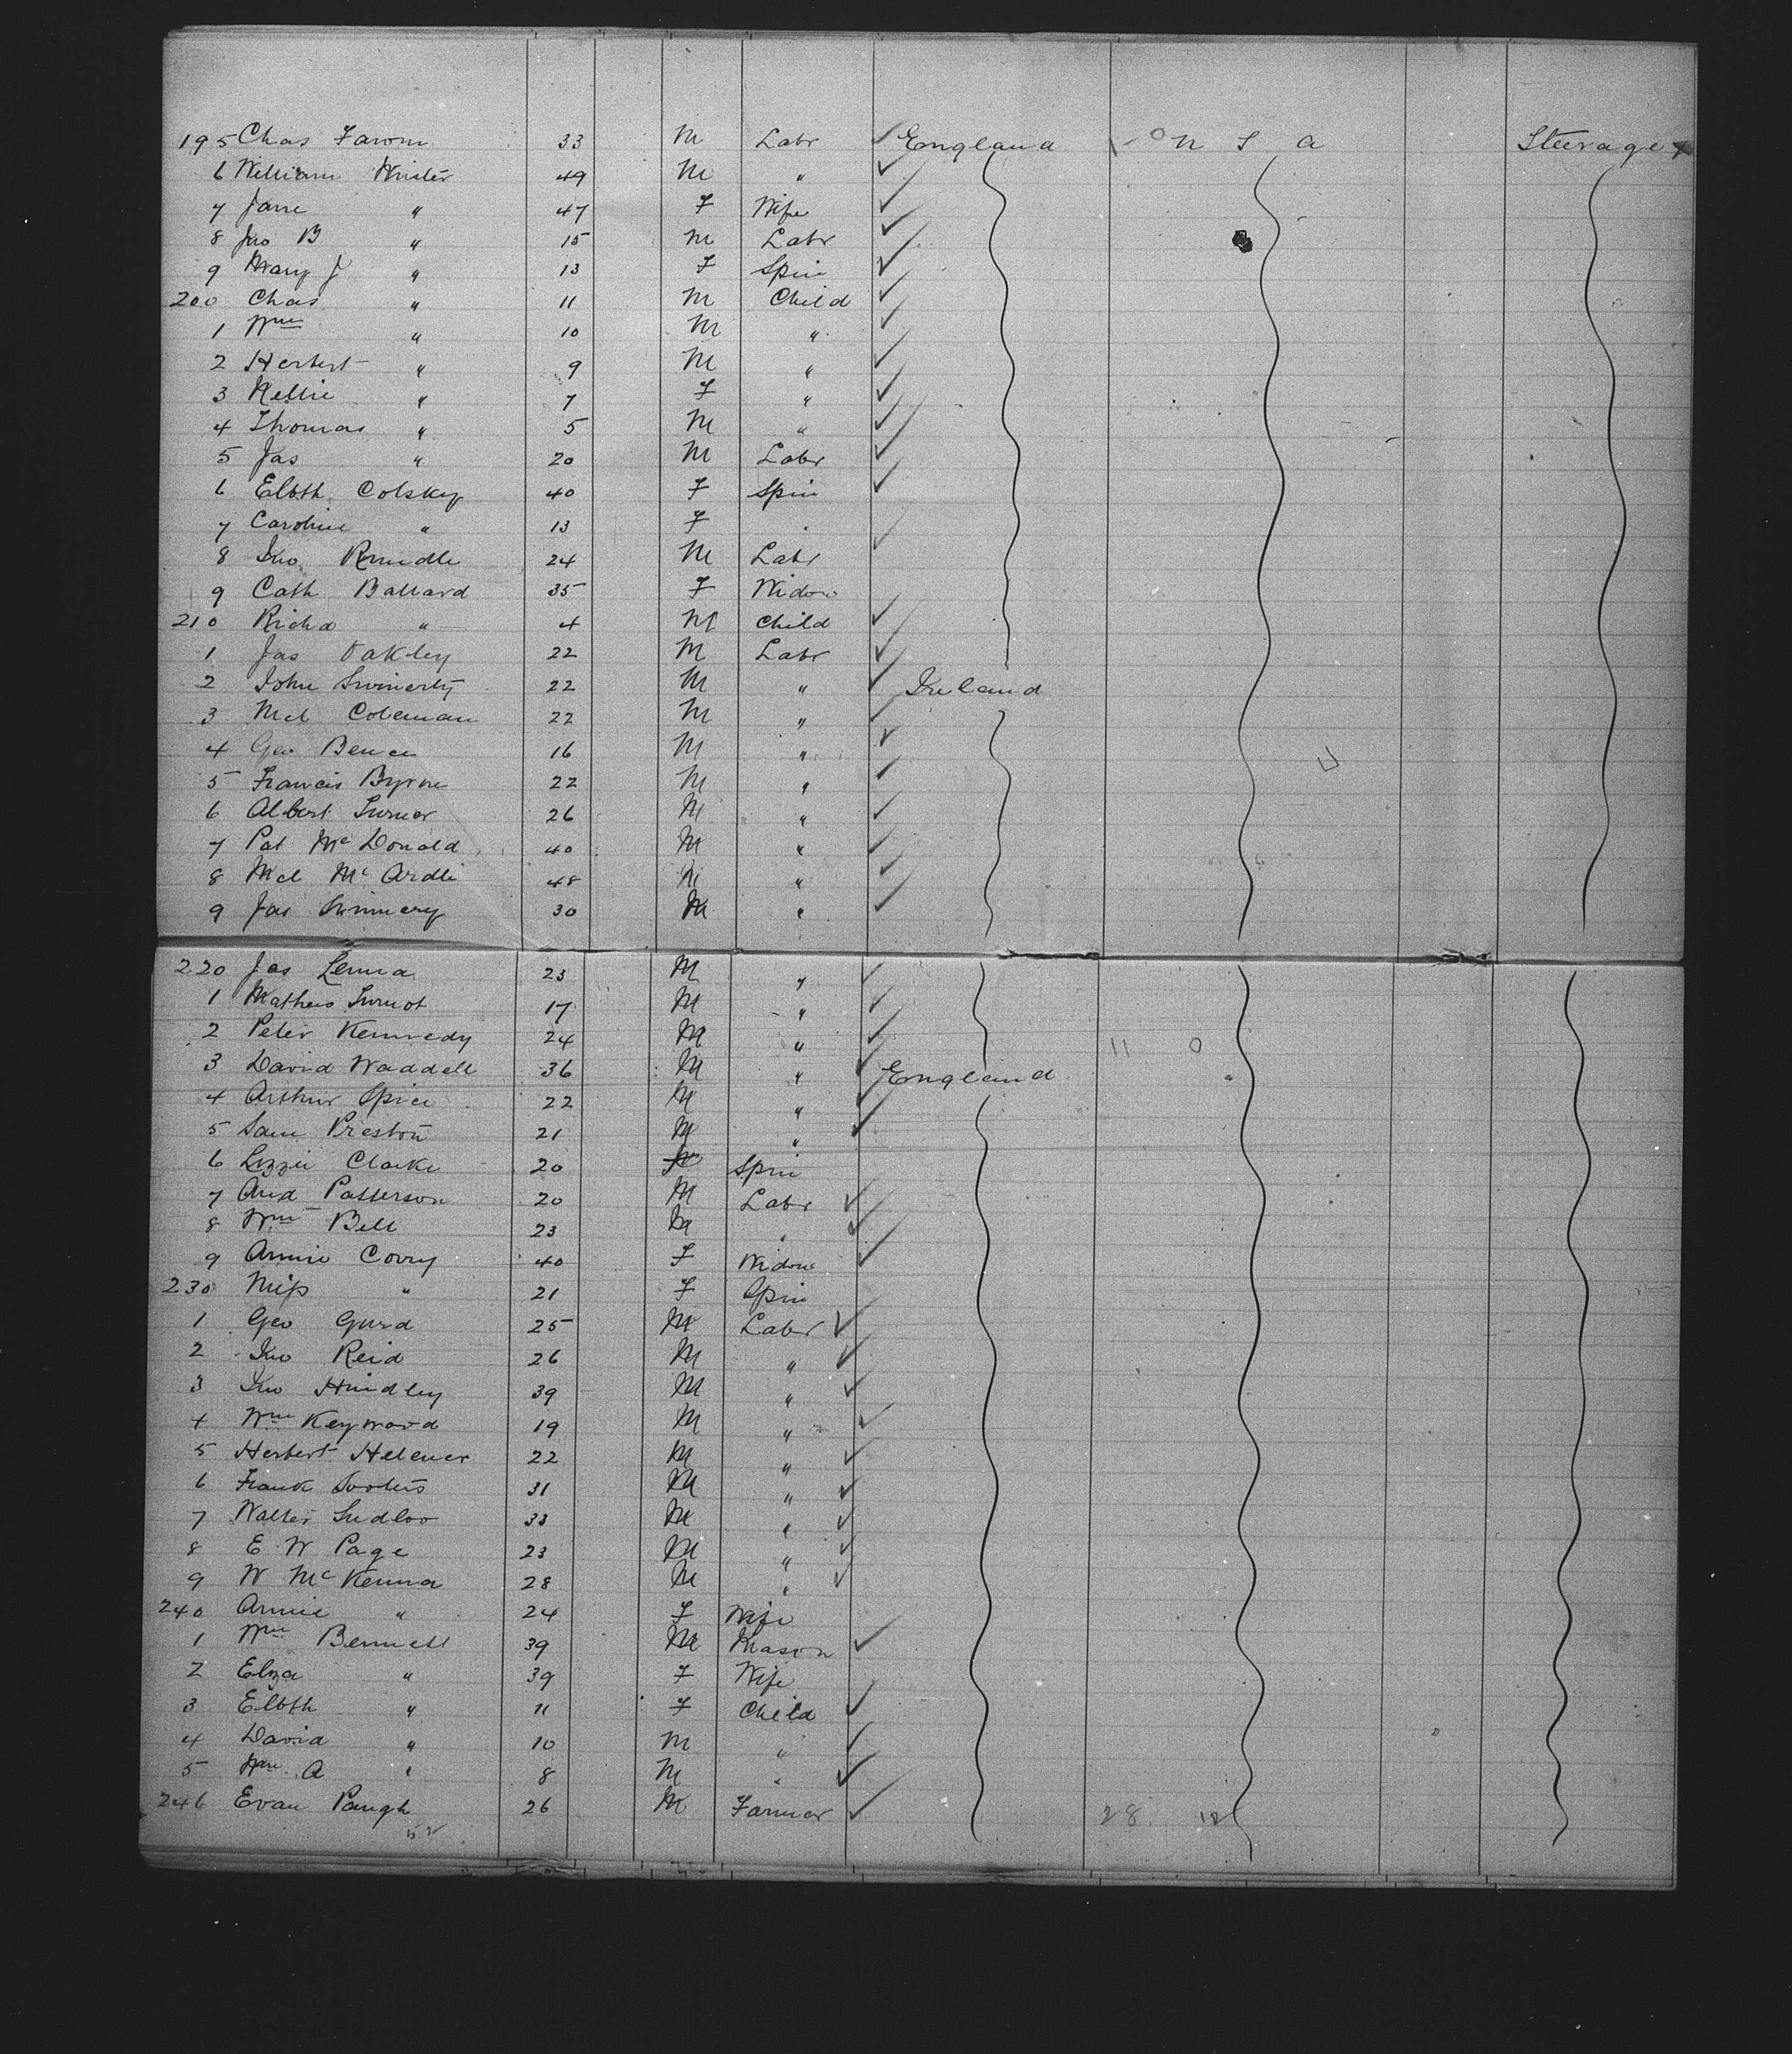 195 Chas 33 M Labr England U S A Steerage
6 William Winter 49 M "
7 Jane " 47 F Wife
8 Jno B " 15 M Labr
9 Mary J " 13 F Spin
200 Chas " 11 M Child
1 Wm " 10 M "
2 Herbert " 9 M "
3 Nellie " 7 F "
4 Thomas " 5 M "
5 Jas " 20 M Labr
6 Elbth Colskey 40 F Spin
7 Caroline " 13 F "
8 Jno Rundle 24 M Labr
9 Cath Ballard 35 F Widow
210 Richd " 4 M Child
1 Jas Oakley 22 M Labr
2 John 22 M " Ireland
3 Mcl Coleman 22 M "
4 Geo 16 M "
5 Francis Byrne 22 M "
6 Albert Turner 26 M "
7 Pat Mc Donald 40 M "
8 Mcl Mc Ardle 48 M "
9 Jas 30 M "
220 Jas 23 M "
1 17 M "
2 Peter Kennedy 24 M " 11 0
3 David Waddell 36 M " England
4 Arthur Spice 22 M "
5 Sam Preston 21 M "
6 Lizzie Clarke 20 F Spin
7 And Patterson 20 M Labr
8 Wm Bell 23 M "
9 Annie Corry 40 F Widow
230 Miss " 21 F Spin
1 Geo Gurd 25 M Labr
2 Jno Reid 26 M "
3 Jno Hindley 39 M "
4 Wm Keywood 19 M "
5 Herbert 22 M "
6 Frank 31 M "
7 Walter 33 M "
8 E W Page 23 M "
9 W McKenna 28 M "
240 Annie " 24 F Wife
1 Wm Bennell 39 M Mason
2 Elza " 39 F Wife
3 Elbth " 11 F Child
4 David " 10 M "
5 Wm A " 8 M "
246 Evan 26 M Farmer 28 12
52